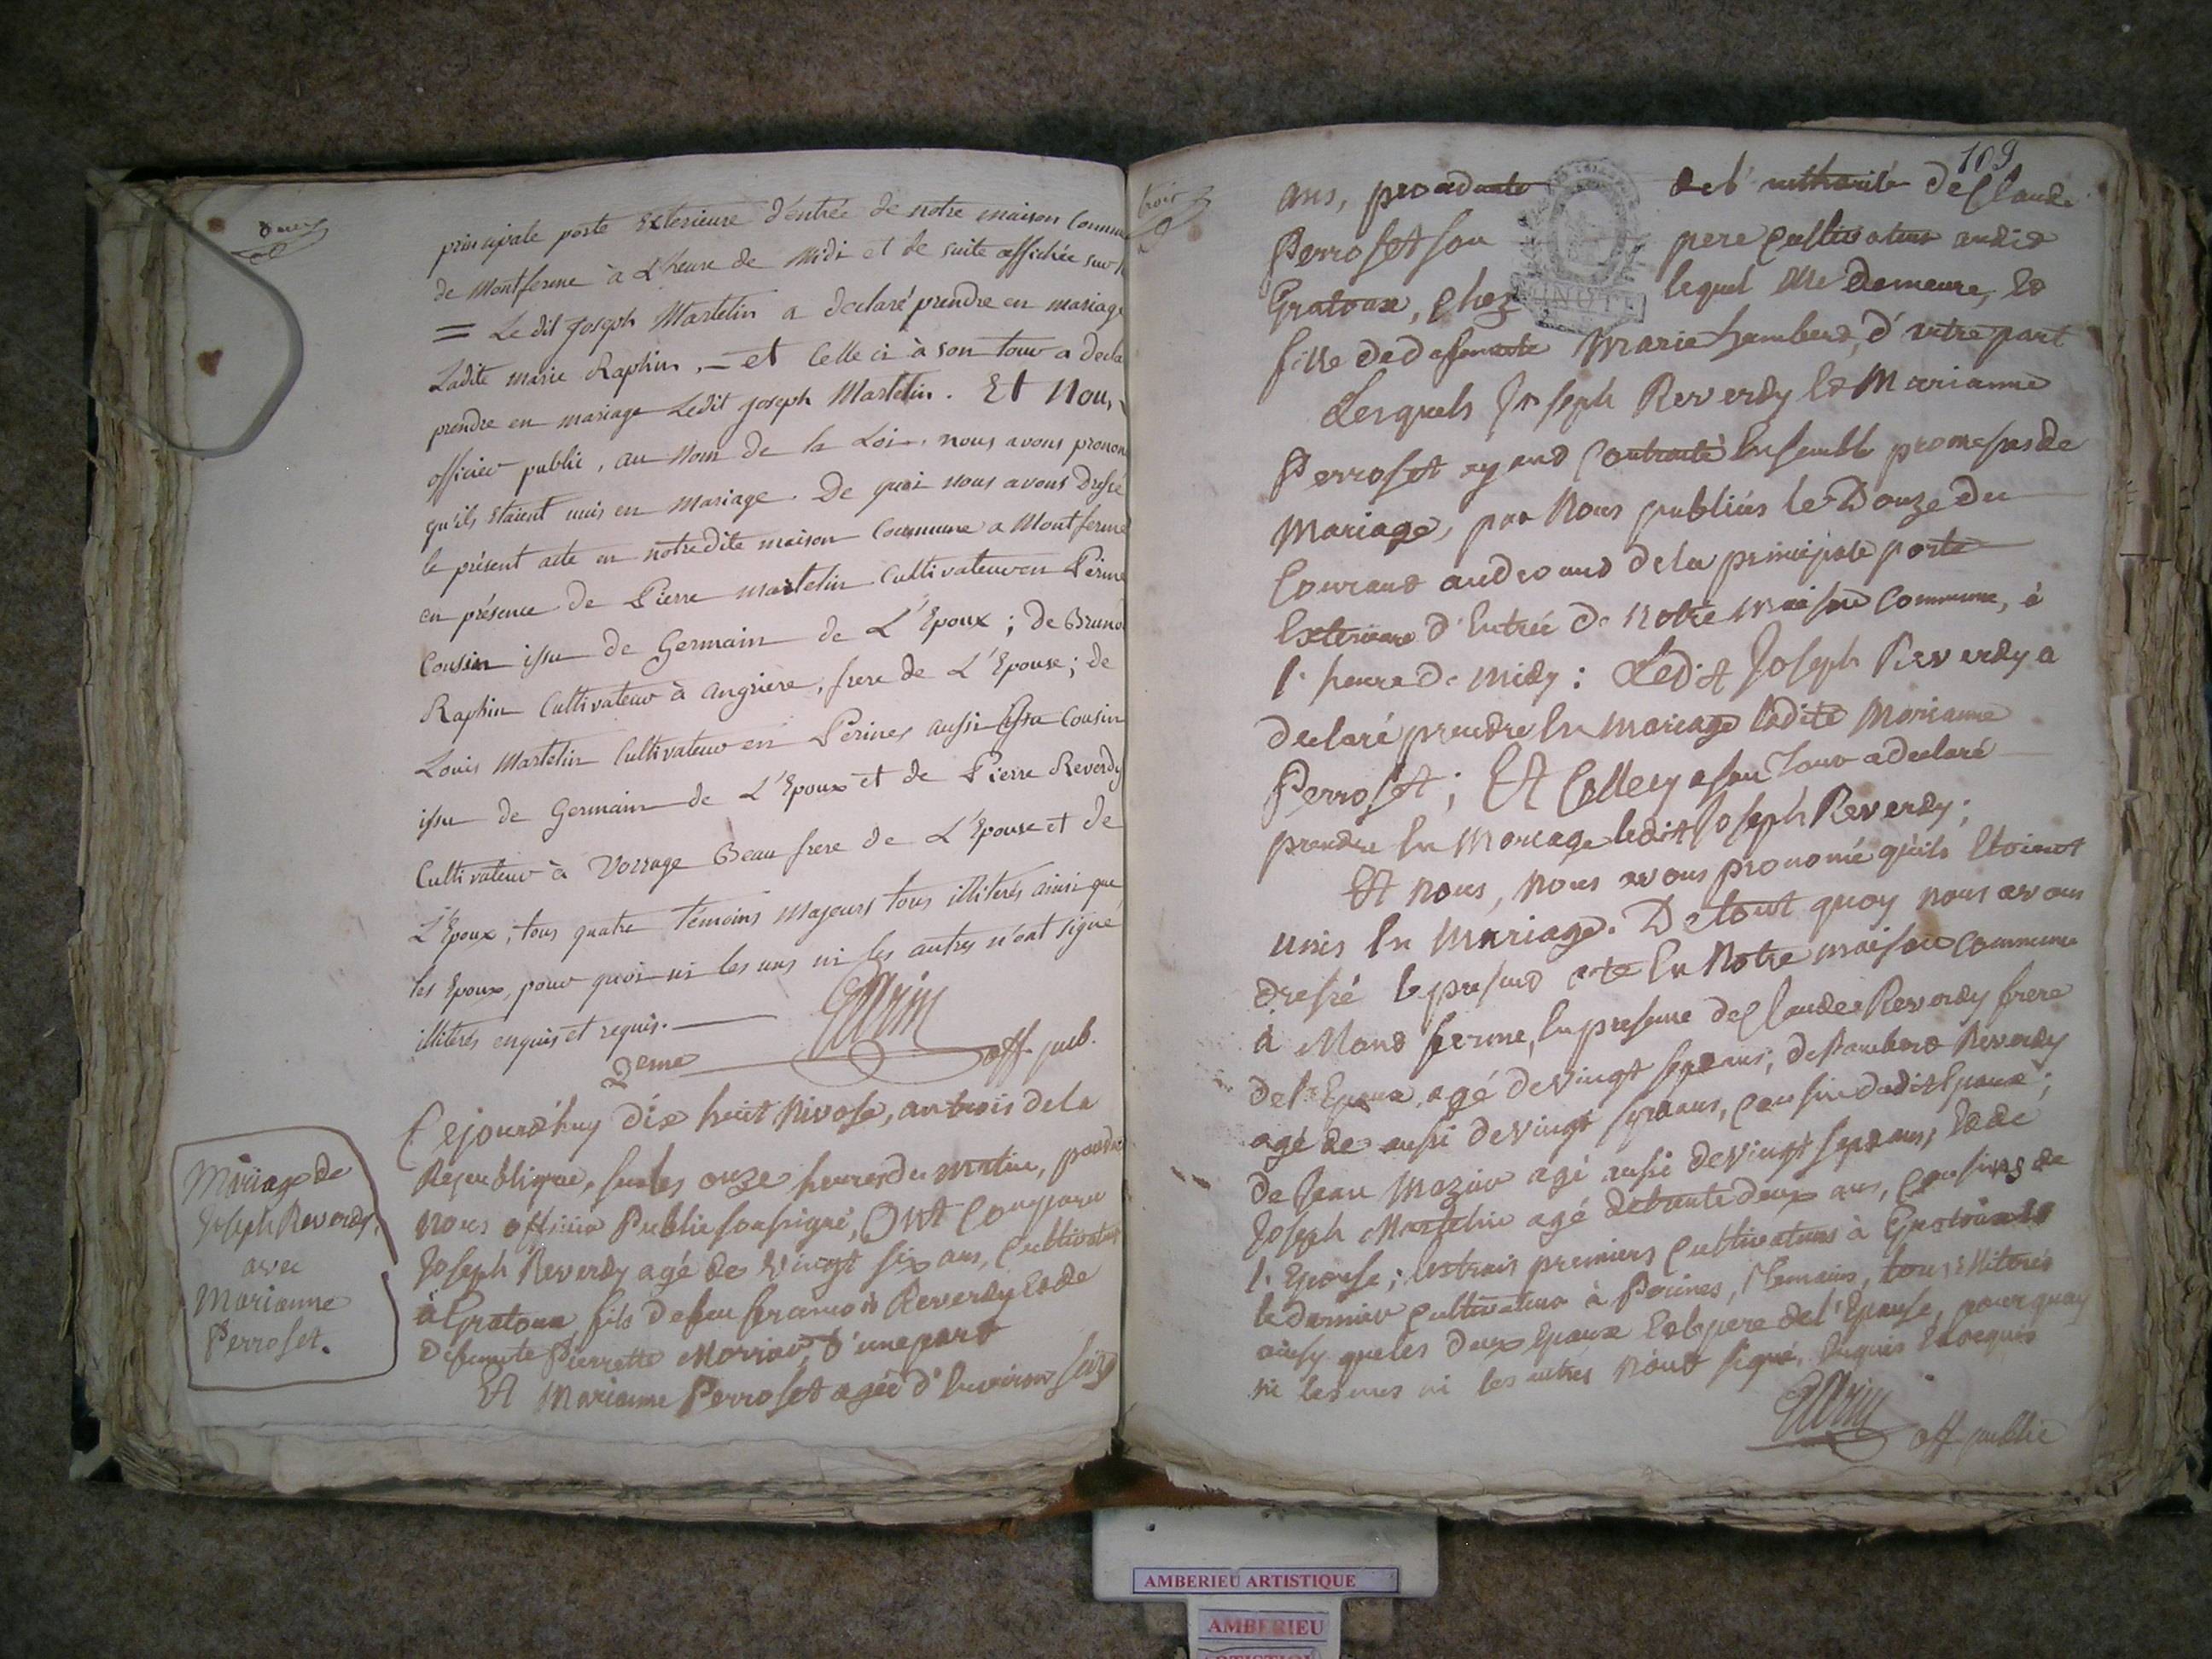 principale porte Exterieure d'entrée de notre maison Commu
de Montferme à L'heure de Midi et de suite affichée sur
= Le dit Joseph Martelin a declaré prendre en mariage
Ladite marie Raphin, – et Celle ci à son tour a decla
prendre en mariage Ledit joseph Martelin. Et Nous,
officier public, au Nom de la Loi, nous avons pronon
qu'ils Etaient unis en Mariage. De quoi nous avons Dressé
le présent acte en notredite maison Commune a Montferme
en présence de Pierre martelin Cultivateur en Périne
Cousin issu de Germain de L'Epoux; de Bruno
Raphin Cultivateur à angriere, frere de L'Epouse; de
Louis Martelin Cultivateur en Pérines aussi Cousin
issu de Germain de L'Epoux et de Pierre Reverdy
Cultivateur à Vorrage Beau frere de L'Epouse et de
L'Epoux, tous quatre Témoins Majeurs tous illiterés ainsi que
les Epoux, pour quoi ni les uns ni les autres n'ont signé
illiterés enquis et requis.
2eme off. pub.
Mariage de
Joseph Reverdy
avec
Marianne
Perroset.
Cejourd'huy dix huit Nivose, an trois de la
Republique, sur les onze heures du matin, pardev
nous officier Public soussigné, Ont Comparu
Joseph Reverdy agé de vingt six ans, Cultivateur
à Gratoux fils de feu francois Reverdy Et de
defunte Pierrette Morrier, d'une part
Et Marianne Perroset agée d'Environ seize
trois
109
ans, procedante de l'authorité de Claude
Perroset son pere Cultivateur audit
Gratoux, Chez lequel Elle Demeure, Et
MINUTE
fille de defunte Marie Lambert, d'autre part
Lesquels Joseph Reverdy Et Marianne
Perroset ayant Contracté Ensemble promesses de
Mariage, par Nous publiées le Douze du
Courant au devant de la principale porte
Exterieure d'Entrée de Notre maison Commune, à
l'heure de midy: Ledit Joseph Reverdy a
declaré prendre En mariage ladite Marianne
Perroset; Et Cellecy a son Tour a declaré
prendre En Mariage ledit Joseph Reverdy;
Et nous, nous avons prononcé qu'ils Etoient
unis En Mariage. De tout quoy nous avons
dressé le present acte En Notre maison Commune
à Mont ferme, En presence de Claude Reverdy frere
de l'Epoux agé de vingt sept ans; de Lambert Reverdy
agé de aussi de vingt sept ans, Cousin dudit Epoux;
de Jean Mazuir agé aussi de vingt sept ans; Et de
Joseph Martelin agé de trente deux ans, Cousins de
l'Epouse; les trois premiers Cultivateurs à Gratoux Et
le dernier Cultivateur à Perines, Temoins, tous illiterés
ainsy que les deux Epoux Et le pere de l'Epouse, pourquoy
ni les uns ni les autres n'ont signé, Enquis Et requis
off public
AMBERIEU ARTISTIQUE
AMBERIEU
ARTISTIQUE